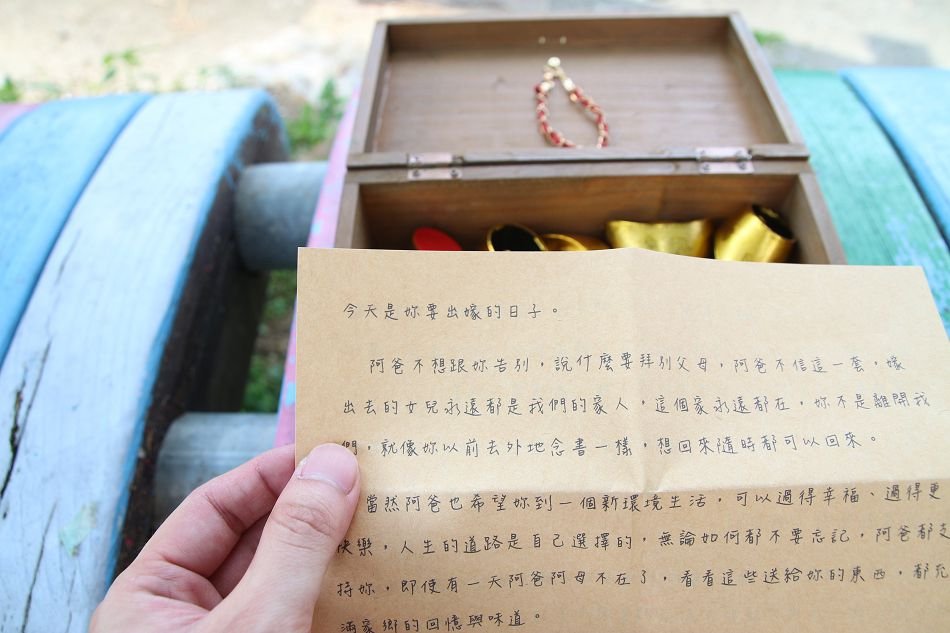 今天是妳要出嫁的日子。
阿爸不想跟妳告別，說什麼要拜別父母，阿爸不信這一套，嫁
出去的女兒永遠都是我們的家人，這個家永遠都在，妳不是離開我
們，就像妳以前去外地念書一樣，想回來隨時都可以回來。
當然阿爸也希望妳到一個新環境生活，可以過得幸福、過得更
快樂，人生的道路是自己選擇的，無論如何都不要忘記，阿爸都支
持妳，即使有一天阿爸阿母不在了，看看這些送給妳的東西，都充
滿家鄉的回憶與味道。